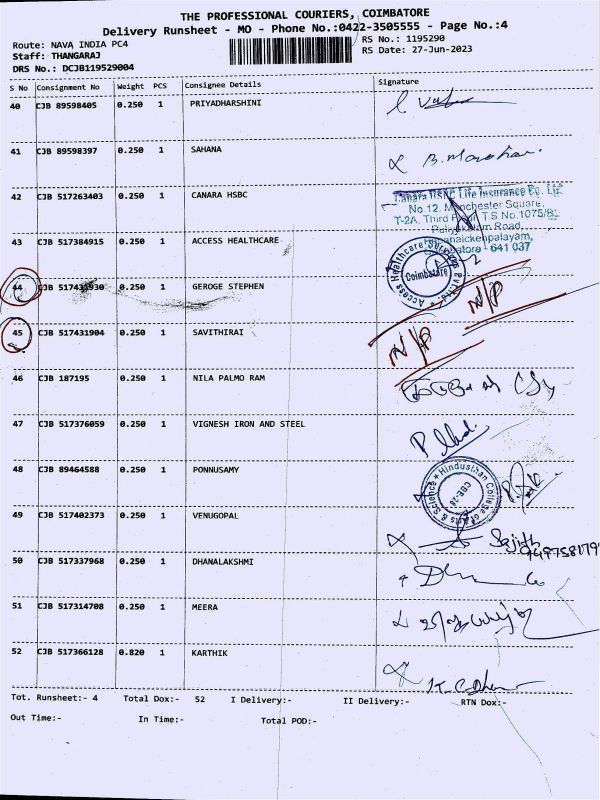 THE PROFESSIONAL COURIERS, COIMBATORE
Delivery Runsheet - MO - Phone No.:0422-3505555 - Page No.:4
Route: NAVA INDIA PC4
RS No.: 1195290
Staff: THANGARAJ
RS Date: 27-Jun-2023
DRS No.: DCJB119529004
S No Consignment No Weight PCS Consignee Details Signature
40 CJB 89598405 0.250 1 PRIYADHARSHINI
41 CJB 89598397 0.250 1 SAHANA B. Manohar.
42 CJB 517263403 0.250 1 CANARA HSBC
Canara HSBC Life Insurance Co. Ltd
No 12, Manchester Square,
T-2A, Third Floor, T.S No.1075/B2
Road,
Coimbatore - 641 037
43 CJB 517384915 0.250 1 ACCESS HEALTHCARE
Access Healthcare Services Pvt Ltd
Coimbatore
44 CJB 517431930 0.250 1 GEROGE STEPHEN N/P
45 CJB 517431904 0.250 1 SAVITHIRAI N/P
46 CJB 187195 0.250 1 NILA PALMO RAM
47 CJB 517376059 0.250 1 VIGNESH IRON AND STEEL
48 CJB 89464588 0.250 1 PONNUSAMY
Hindusthan College of Arts & Science
CBE-28
49 CJB 517402373 0.250 1 VENUGOPAL Sajith
50 CJB 517337968 0.250 1 DHANALAKSHMI
51 CJB 517314708 0.250 1 MEERA
52 CJB 517366128 0.820 1 KARTHIK
Tot. Runsheet:- 4 Total Dox:- 52 I Delivery:- II Delivery:- RTN Dox:-
Out Time:- In Time:- Total POD:-